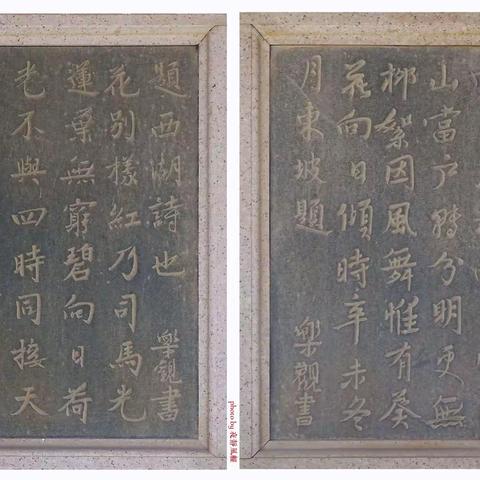 光不與四時同接天
蓮葉無窮碧向日荷
花別樣紅乃司馬光
題西湖詩也
樂觀書
山當戶轉分明更無
柳絮因風舞惟有葵
花向日傾時辛未冬
月東坡題
樂觀書
photo by